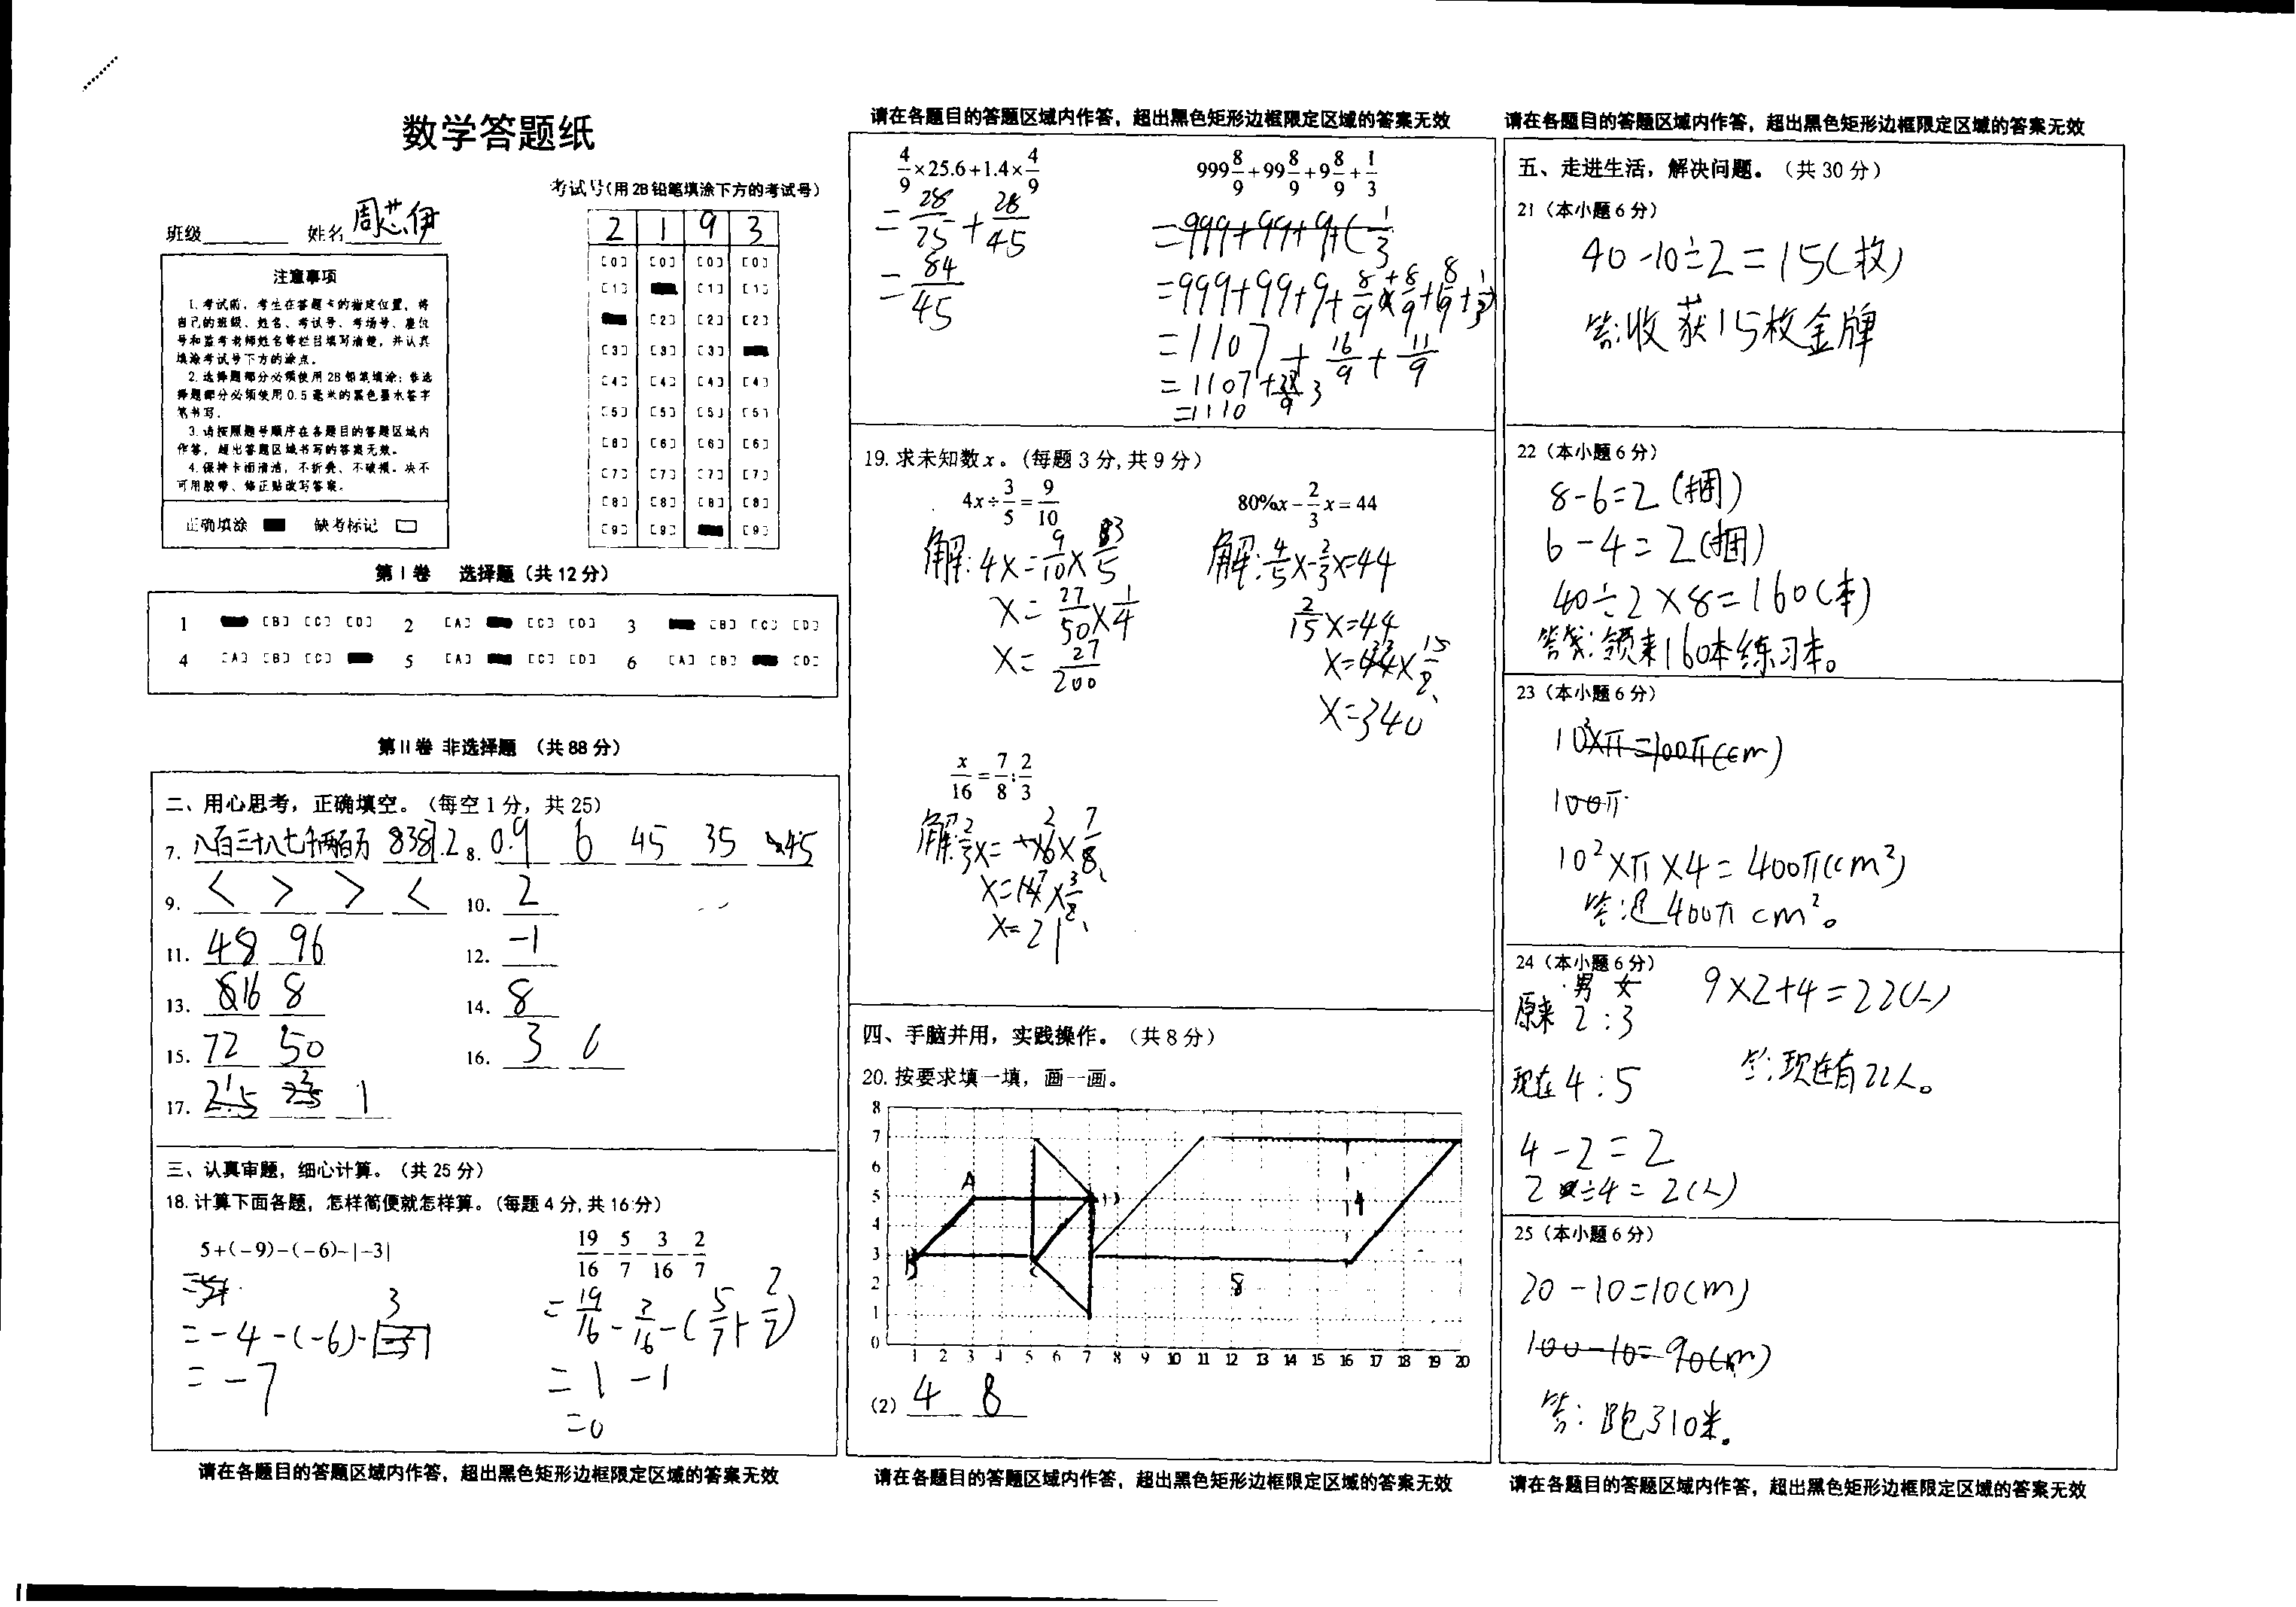 数学答题纸
考试号(用2B铅笔填涂下方的考试号)
班级 姓名 周芯伊
2 1 9 3
注意事项
1.考试前，考生在答题卡的指定位置，将
自己的班级、姓名、考试号、考场号、座位
号和监考老师姓名等栏目填写清楚，并认真
填涂考试号下方的涂点。
2.选择题部分必须使用2B铅笔填涂；非选
择题部分必须使用0.5毫米的黑色墨水签字
笔书写。
3.请按照题号顺序在各题目的答题区域内
作答，超出答题区域书写的答案无效。
4.保持卡面清洁，不折叠、不破损。决不
可用胶带、修正贴改写答案。
正确填涂 缺考标记
[0] [0] [0] [0]
[1] [1] [1]
[2] [2] [2]
[3] [3] [3]
[4] [4] [4] [4]
[5] [5] [5] [5]
[6] [6] [6] [6]
[7] [7] [7] [7]
[8] [8] [8] [8]
[9] [9] [9]
第Ⅰ卷 选择题（共12分）
1 [B] [C] [D] 2 [A] [C] [D] 3 [B] [C] [D]
4 [A] [B] [C] 5 [A] [C] [D] 6 [A] [B] [D]
第Ⅱ卷 非选择题 （共88分）
二、用心思考，正确填空。（每空1分，共25）
7. 八百三十八七千两百万 8387.2 8. 0.9 6 45 35 45
9. < > > < 10. 2
11. 48 96 12. -1
13. 16 8 14. 8
15. 72 50 16. 3 6
17. 1
三、认真审题，细心计算。（共25分）
18.计算下面各题，怎样简便就怎样算。（每题4分,共16分）
5+(-9)-(-6)-|-3|
=-4-(-6)-3
=-7
19/16-5/7-3/16-2/7
=19/16-3/16-(5/7+2/7)
=1-1
=0
请在各题目的答题区域内作答，超出黑色矩形边框限定区域的答案无效
请在各题目的答题区域内作答，超出黑色矩形边框限定区域的答案无效
4/9×25.6+1.4×4/9
=28/25+28/45
=84/45
999 8/9+99 8/9+9 8/9+1/3
=999+99+9+(1/3
=999+99+9+8/9+8/9+8/9+1/3
=1107+16/9+11/9
=1107+3
=1110
19.求未知数x。（每题3分,共9分）
4x÷3/5=9/10
解:4x=9/10×3/5
x=27/50×1/4
x=27/200
80%x-2/3x=44
解:4/5x-2/3x=44
2/15x=44
x=44×15/2
x=340
x/16=7/8:2/3
解:2/3x=16×7/8
x=14×3/2
x=21
四、手脑并用，实践操作。（共8分）
20.按要求填一填，画一画。
8
7
6
5
4
3
2
1
0
A D
B C
4
8
1 2 3 4 5 6 7 8 9 10 11 12 13 14 15 16 17 18 19 20
(2) 4 8
请在各题目的答题区域内作答，超出黑色矩形边框限定区域的答案无效
请在各题目的答题区域内作答，超出黑色矩形边框限定区域的答案无效
五、走进生活，解决问题。（共30分）
21（本小题6分）
40-10÷2=15(枚)
答:收获15枚金牌
22（本小题6分）
8-6=2(捆)
6-4=2(捆)
40÷2×8=160(本)
答:领来160本练习本。
23（本小题6分）
10²×π=100π(cm)
100π
10²×π×4=400π(cm²)
答:是400π cm²。
24（本小题6分）
男 女
原来 2:3
现在 4:5
4-2=2
2÷4=2(人)
9×2+4=22(人)
答:现在有22人。
25（本小题6分）
20-10=10(m)
100-10=90(m)
答:跑310米。
请在各题目的答题区域内作答，超出黑色矩形边框限定区域的答案无效